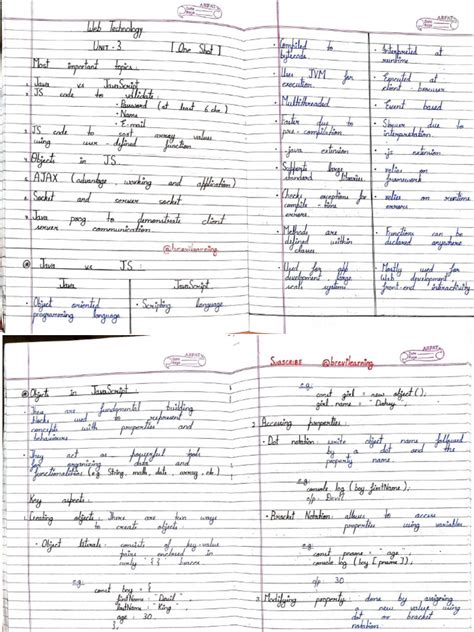 Web Technology
UNIT - 3 [One Shot]
Most important topics:
1. Java vs JavaScript
2. JS code to validate:
• Password (at least 6 chr.)
• Name
• E-mail
3. JS code to sort array value
using user-defined function
4. Objects in JS
5. AJAX (advantage, working and application)
6. Socket and server socket.
7. Java prog. to demonstrate client
server communication.
@brevilearning
Java vs JS:
Java JavaScript
• Object oriented
programming language
• Scripting language
• Compiled to
bytecode
• Interpreted at
runtime
• Uses JVM for
execution.
• Executed at
client-browser
• Multithreaded
• Event based
• Faster due to
pre-compilation
• Slower due to
interpretation
• .java extension
• .js extension
• Supports large
standard libraries
• relies on
framework
• Checks exceptions for
compile-time
errors.
• relies on runtime
errors.
• Methods are
defined within
classes.
• Functions can be
declared anywhere
• Used for app
development in large
scale
• Mostly used in
Web development
front-end interactivity.
Objects in JavaScript:
• They are fundamental building
blocks used to represent
concepts with properties and
behaviours
• They act as powerful tools
for organizing data and
functionalities (e.g. String, math, date, array, etc)
Key aspects:
1. Creating objects: There are two ways
to create objects
• Object literals: consists of key-value
pairs enclosed in
curly {} braces
eg:
const boy = {
firstName: "Devil"
lastName: "King"
age: 30
SUBSCRIBE @brevilearning
eg:
const girl = new object();
girl name =
2. Accessing properties:
• Dot notation: write object name followed
by a dot and the
property name.
eg:
console.log (boy.firstName);
o/p: Devil
• Bracket Notation: allows to access
properties using variables.
eg:
const pname = "age";
console.log (boy [pname]);
o/p: 30
3. Modifying property: done by assigning
a new value
using dot or bracket
notation.